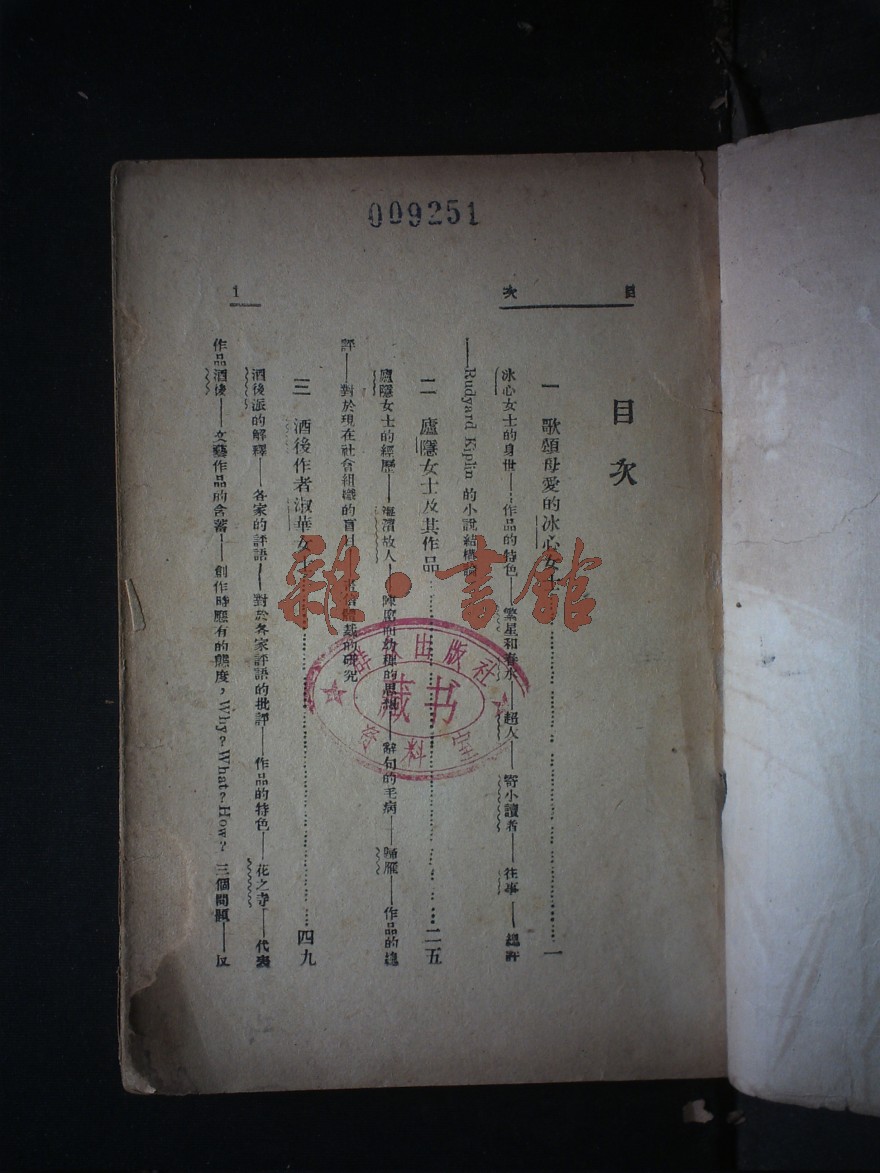 009251
目次
1
目次
一 歌頌母愛的冰心女士 一
冰心女士的身世——作品的特色——繁星和春水——超人——寄小讀者——往事——總評
——Rudyard Kiplin 的小說結構論
二 廬隱女士及其作品 二五
廬隱女士的經歷——海濱故人——的思想——辭句的毛病——作品的總
評——對於現在社會組織的的研究
三 酒後作者淑華女士 四九
酒後派的解釋——各家的評語——對於各家評語的批評——作品的特色——花之寺——代表
作品酒後——文藝作品的含蓄——創作時應有的態度，Why? What? How? 三個問題——反
雜·書館
出版社
藏书
资料室